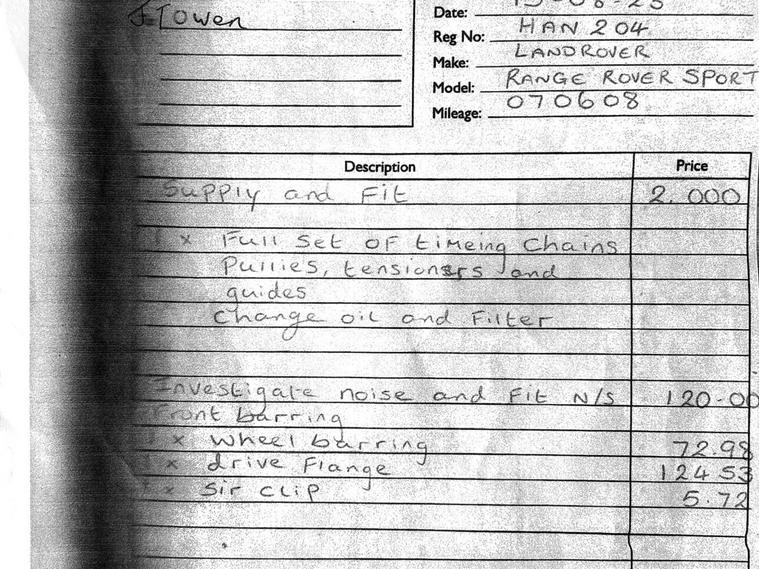 J Towen
Date: 15-08-23
Reg No: HAN 204
Make: LANDROVER
Model: RANGE ROVER SPORT
Mileage: 070608
Description Price
Supply and Fit 2.000
1 x Full Set OF timeing Chains
Pullies, tensioners and
guides
Change oil and Filter
Investigate noise and Fit N/S 120-00
Front barring
1 x wheel barring 72.98
1 x drive Flange 124 53
1 x Sir CLIP 5.72